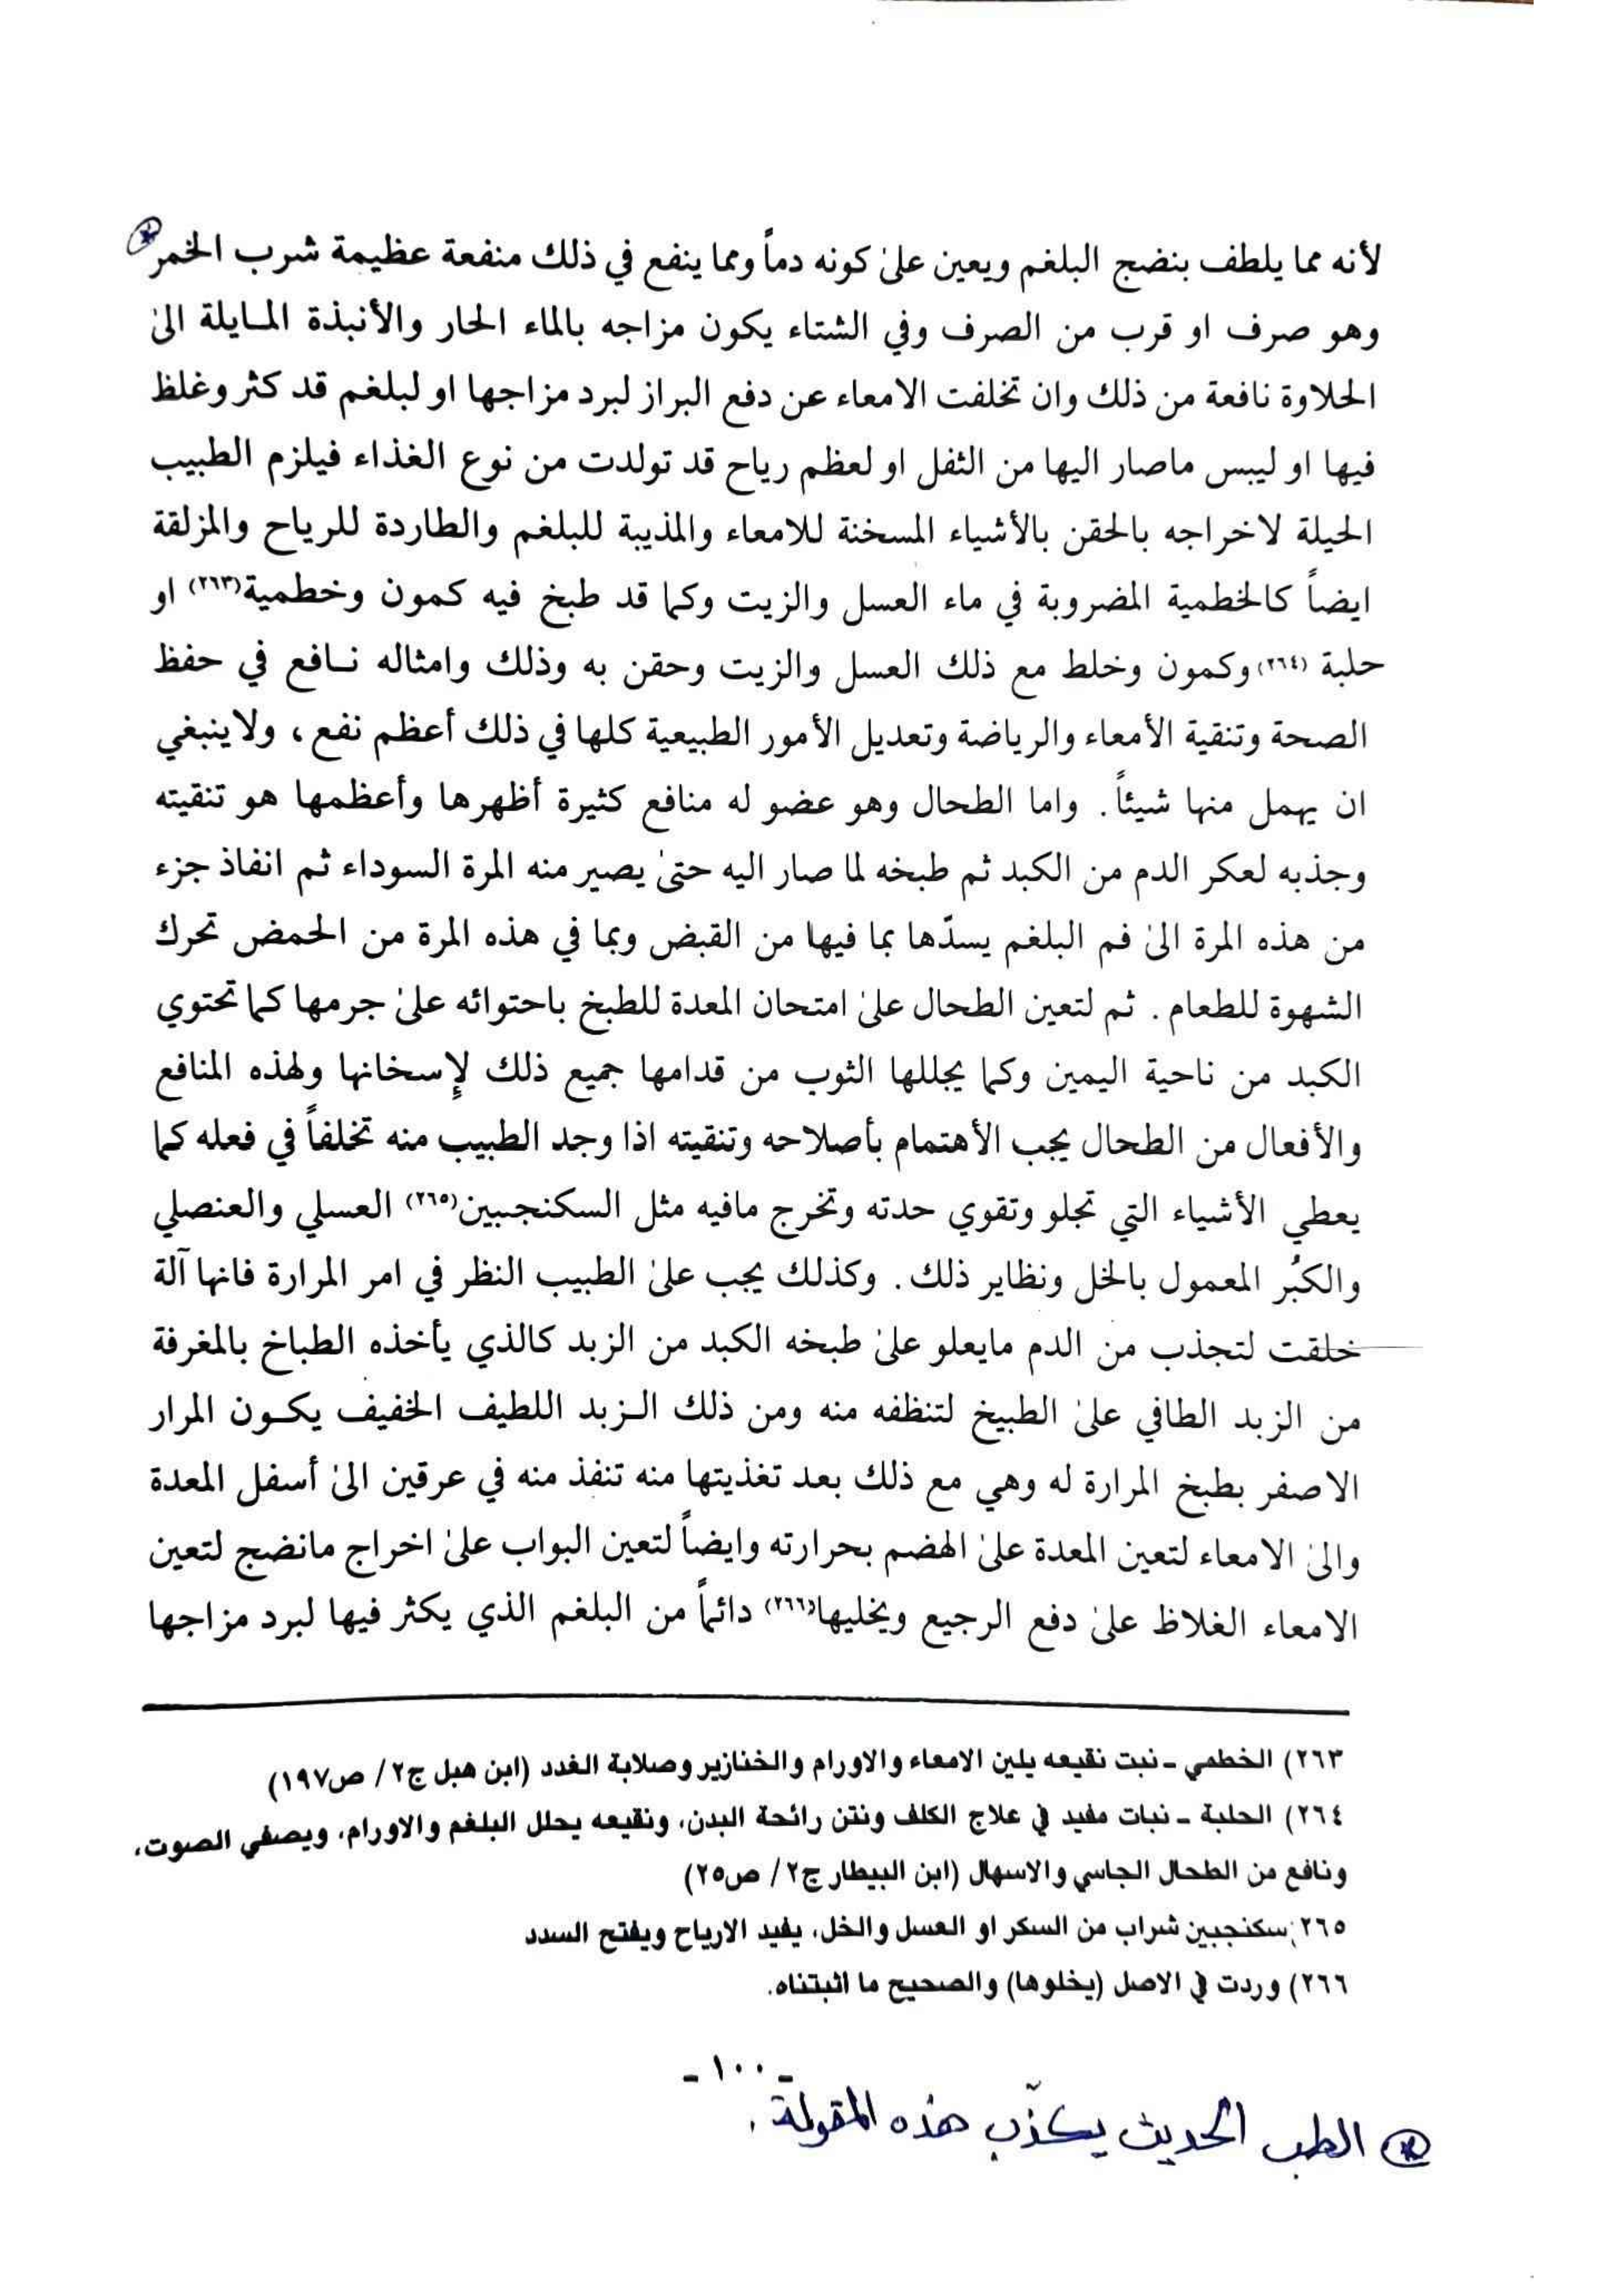 لأنه مما يلطف بنضج البلغم ويعين على كونه دماً ومما ينفع في ذلك منفعة عظيمة شرب الخمر
وهو صرف او قرب من الصرف وفي الشتاء يكون مزاجه بالماء الحار والأنبذة المايلة الى
الحلاوة نافعة من ذلك وان تخلفت الامعاء عن دفع البراز لبرد مزاجها او لبلغم قد كثر وغلظ
فيها او ليبس ماصار اليها من الثفل او لعظم رياح قد تولدت من نوع الغذاء فيلزم الطبيب
الحيلة لاخراجه بالحقن بالأشياء المسخنة للامعاء والمذيبة للبلغم والطاردة للرياح والمزلقة
ايضاً كالخطمية المضروبة في ماء العسل والزيت وكما قد طبخ فيه كمون وخطمية(٢٦٣) او
حلبة (٢٦٤) وكمون وخلط مع ذلك العسل والزيت وحقن به وذلك وامثاله نافع في حفظ
الصحة وتنقية الأمعاء والرياضة وتعديل الأمور الطبيعية كلها في ذلك أعظم نفع، ولاينبغي
ان يهمل منها شيئاً. واما الطحال وهو عضو له منافع كثيرة أظهرها وأعظمها هو تنقيته
وجذبه لعكر الدم من الكبد ثم طبخه لما صار اليه حتى يصير منه المرة السوداء ثم انفاذ جزء
من هذه المرة الى فم البلغم يسدّها بما فيها من القبض وبما في هذه المرة من الحمض تحرك
الشهوة للطعام. ثم لتعين الطحال على امتحان المعدة للطبخ باحتوائه على جرمها كما تحتوي
الكبد من ناحية اليمين وكما يجللها الثوب من قدامها جميع ذلك لإسخانها ولهذه المنافع
والأفعال من الطحال يجب الأهتمام بأصلاحه وتنقيته اذا وجد الطبيب منه تخلفاً في فعله كما
يعطي الأشياء التي تجلو وتقوي حدته وتخرج مافيه مثل السكنجبين(٢٦٥) العسلي والعنصلي
والكبُر المعمول بالخل ونظاير ذلك. وكذلك يجب على الطبيب النظر في امر المرارة فانها آلة
خلقت لتجذب من الدم مايعلو على طبخه الكبد من الزبد كالذي يأخذه الطباخ بالمغرفة
من الزبد الطافي على الطبيخ لتنظفه منه ومن ذلك الزبد اللطيف الخفيف يكون المرار
الاصفر بطبخ المرارة له وهي مع ذلك بعد تغذيتها منه تنفذ منه في عرقين الى أسفل المعدة
والى الامعاء لتعين المعدة على الهضم بحرارته وايضاً لتعين البواب على اخراج مانضج لتعين
الامعاء الغلاظ على دفع الرجيع ويخليها(٢٦٦) دائماً من البلغم الذي يكثر فيها لبرد مزاجها
٢٦٣) الخطمي ـ نبت نقيعه يلين الامعاء والاورام والخنازير وصلابة الغدد (ابن هبل ج٢/ ص١٩٧)
٢٦٤) الحلبة ـ نبات مفيد في علاج الكلف ونتن رائحة البدن، ونقيعه يحلل البلغم والاورام، ويصفي الصوت،
ونافع من الطحال الجاسي والاسهال (ابن البيطار ج٢/ ص٢٥)
٢٦٥; سكنجبين شراب من السكر او العسل والخل، يفيد الارياح ويفتح السدد
٢٦٦) وردت في الاصل (يخلوها) والصحيح ما اثبتناه.
- ١٠٠ -
* الطب الحديث يكذّب هذه المقولة.